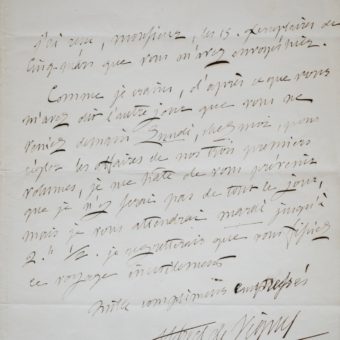 J'ai reçu, monsieur, les 15. Exemplaires de
Cinq-mars que vous m'avez envoyés hier.
Comme je crains, d'après ce que vous
m'avez dit l'autre jour que vous ne
veniez demain Lundi, chez moi, pour
régler les affaires de nos trois premiers
volumes, je me hâte de vous prévenir
que je n'y serai pas de tout le jour,
mais je vous attendrai mardi jusqu'à
2.h 1/2. je regretterais que vous fissiez
ce voyage inutilement
Mille compliments empressés
Alfred de Vigny